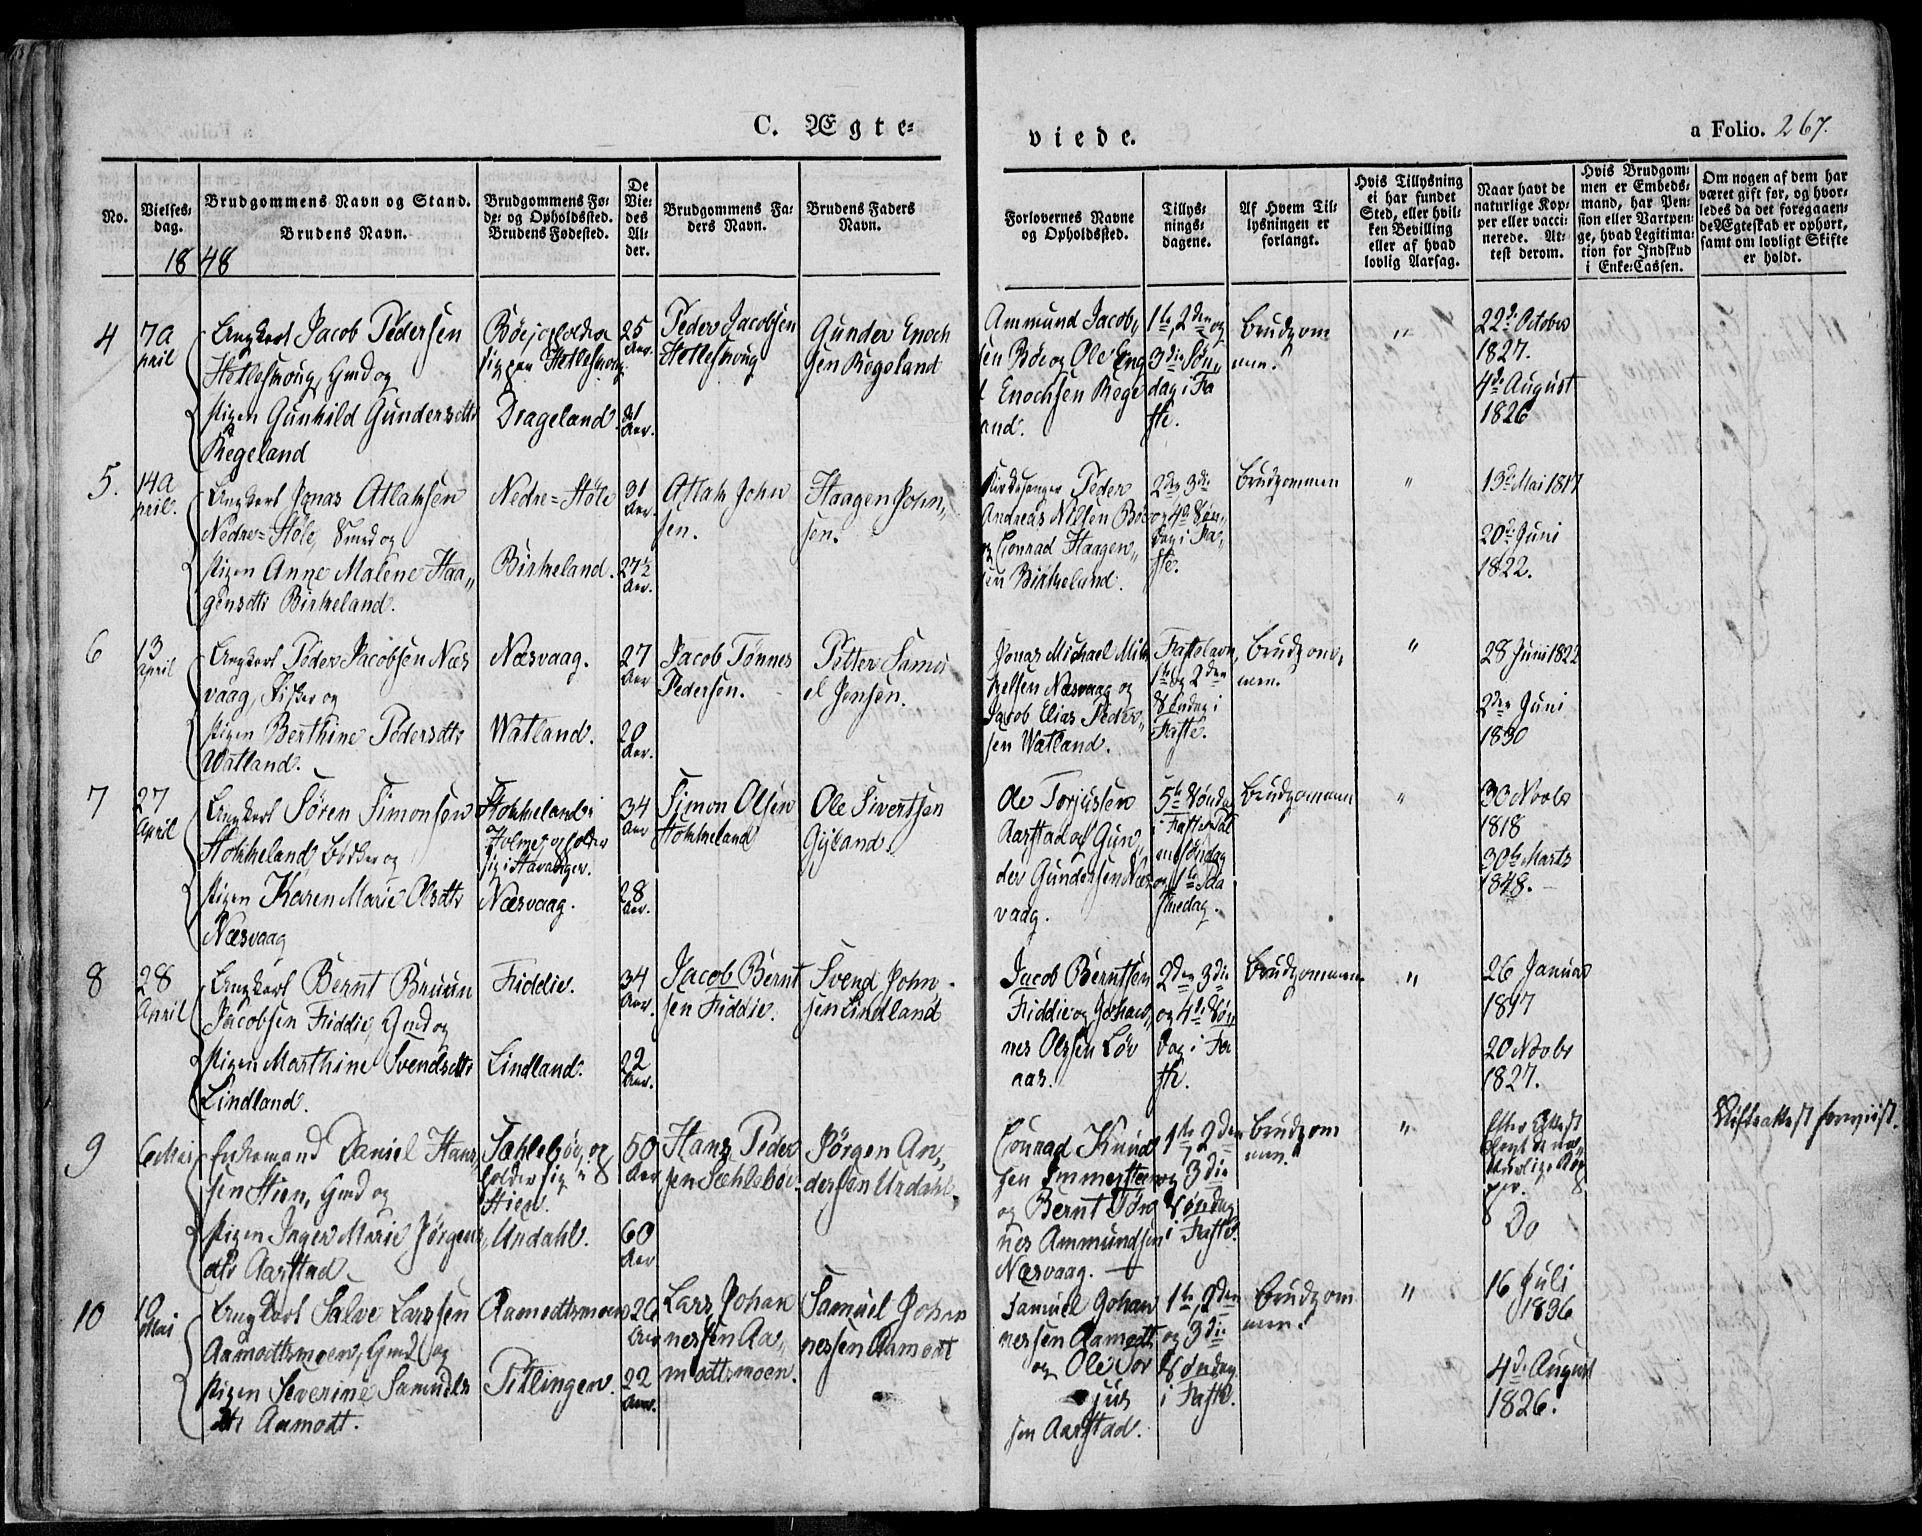 C. Ægte=
viede.
a Folio. 267.
No.
Vielses-
dag.
Brudgommens Navn og Stand.
Brudens Navn.
Brudgommens Fø-
de- og Opholdssted.
Brudens Fødested.
De
Vie-
des
Al-
der.
Brudgommens Fa-
ders Navn.
Brudens Faders
Navn.
Forlovernes Navne
og Opholdssted.
Tillys-
nings-
dagene.
Af Hvem Til-
lysningen er
forlangt.
Hvis Tillysning
ei har fundet
Sted, eller hvil-
ken Bevilling
eller af hvad
lovlig Aarsag.
Naar havt de
naturlige Kop-
per eller vacci-
nerede. At-
test derom.
Hvis Brudgom-
men er Embeds-
mand, har Pen-
sion eller Vartpen-
ge, hvad Legitima-
tion for Indskud
i Enke-Cassen.
Om nogen af dem har
været gift før, og hvor-
ledes da det foregaaen-
de Ægteskab er ophørt,
samt om lovligt Skifte
er holdt.
1848
4
7 A
pril
Ungkarl Jacob Pedersen
Hetleskroug, Gmd og
Pigen Gunhild Gundersdtr
Regeland
Drageland.
25
Aar.
21
Aar.
Peder Jacobsen
Gunder Enoch
sen Regeland
Ammund Jacob,,
sen Bøe og Ole Eng
Enochsen Rege
land.
1te, 2den og
3die Søn,,
dag i Fa
ste.
Brudgom
men.
"
22de October
1827.
4de August
1826
5.
14 A
pril.
Ungkarl Jonas Atlaksen
Nedre=Støle, Gmd og
Pigen Anne Malene Haa,,
gensdtr Birkeland.
Nedre=Støle
Birkeland.
31
Aar.
27½
Aar.
Atlak John
sen.
Haagen John,,
sen.
Kirkesanger Peder
Andreas Nilsen Bøe
og Conrad Haagen,,
sen Birkeland.
2den 3die
og 4de Søn,,
dag i Fa,,
ste.
Brudgommen
"
13de Mai 1817
20de Juni
1822.
6
13
April
Ungkarl Peder Jacobsen Næs
vaag, Fisker og
Pigen Berthine Pedersdtr
Watland.
Næsvaag.
Watland.
27
Aar
20
Aar.
Jacob Tønnes
Pedersen.
Petter Samu
el Jensen.
Jonas Michael Mik
kelsen Næsvaag og
Jacob Elias Peder,,
sen Watland.
Fastelavn,
1te og 2den
Søndag i
Faste.
Brudgom,,
men.
"
28 Juni 1822
2den Juni
1830
7
27
April
Ungkarl Søren Simonsen
Stokkeland, Bødker og
Pigen Karen Marie Olsdtr
Næsvaag
Stokkeland i
Holme, opholder
sig i Stavanger.
Næsvaag.
34
Aar
28
Aar.
Simon Olsen
Stokkeland
Ole Sivertsen
Gyland.
Ole Torjussen
Aarstad og Gun,,
der Gundersen Næs
vaag.
5te Søndag
i Faste, Pal
mesøndag
og 1te Paa
skedag.
Brudgommen
"
30 Novbr
1818
30te Marts
1848.
8
28
April
Ungkarl Bernt Bruun
Jacobsen Fiddie, Gmd og
Pigen Marthine Svendsdtr
Lindland.
Fiddie.
Lindland.
34
Aar.
22
Aar.
Jacob Bernt
sen Fiddie.
Svend John
sen Lindland
Jacob Berntsen
Fiddie og Johan,,
nes Olssen Løv
aas.
2den, 3die
og 4de Søn
dag i Fa
ste.
Brudgommen
"
26 Januar
1817
20 Novbr
1827.
9
6 Mai
Enkemand Daniel Hans,,
sen Stien, Gmd og
Pigen Inger Marie Jørgens,,
dtr Aarstad
Sæhlebøe, op
holder sig i
Stien.
Urdahl.
50
Aar
60
Aar
Hans Peder
sen Sæhlebøe.
Jørgen An,,
dersen Urdahl.
Conrad Knud
sen Immerstein
og Bernt Tørg
nes Ammundsen
Næsvaag.
1te, 2den
og 3die
Søndag
i Faste.
Brudgom
men.
"
Efter Attest
havt de na,,
turlige Kop
per.
Do
Skifteattest foreviist.
10
10
Mai
Ungkarl Salve Larssen
Aamodtsmoen, Gmd og
Pigen Severine Samuels
dtr Aamodt.
Aamodtsmoen
Titlingen.
26
Aar
22
Aar.
Lars Johan
nessen Aa,,
modtsmoen.
Samuel Johan
nessen Aamodt
Samuel Johan
nessen Aamodt
og Ole Tor
jus
sen Aarstad.
1te, 2den
og 3die
Søndag
i Faste.
Brudgom
men.
"
16 Juli
1826
4de August
1826.